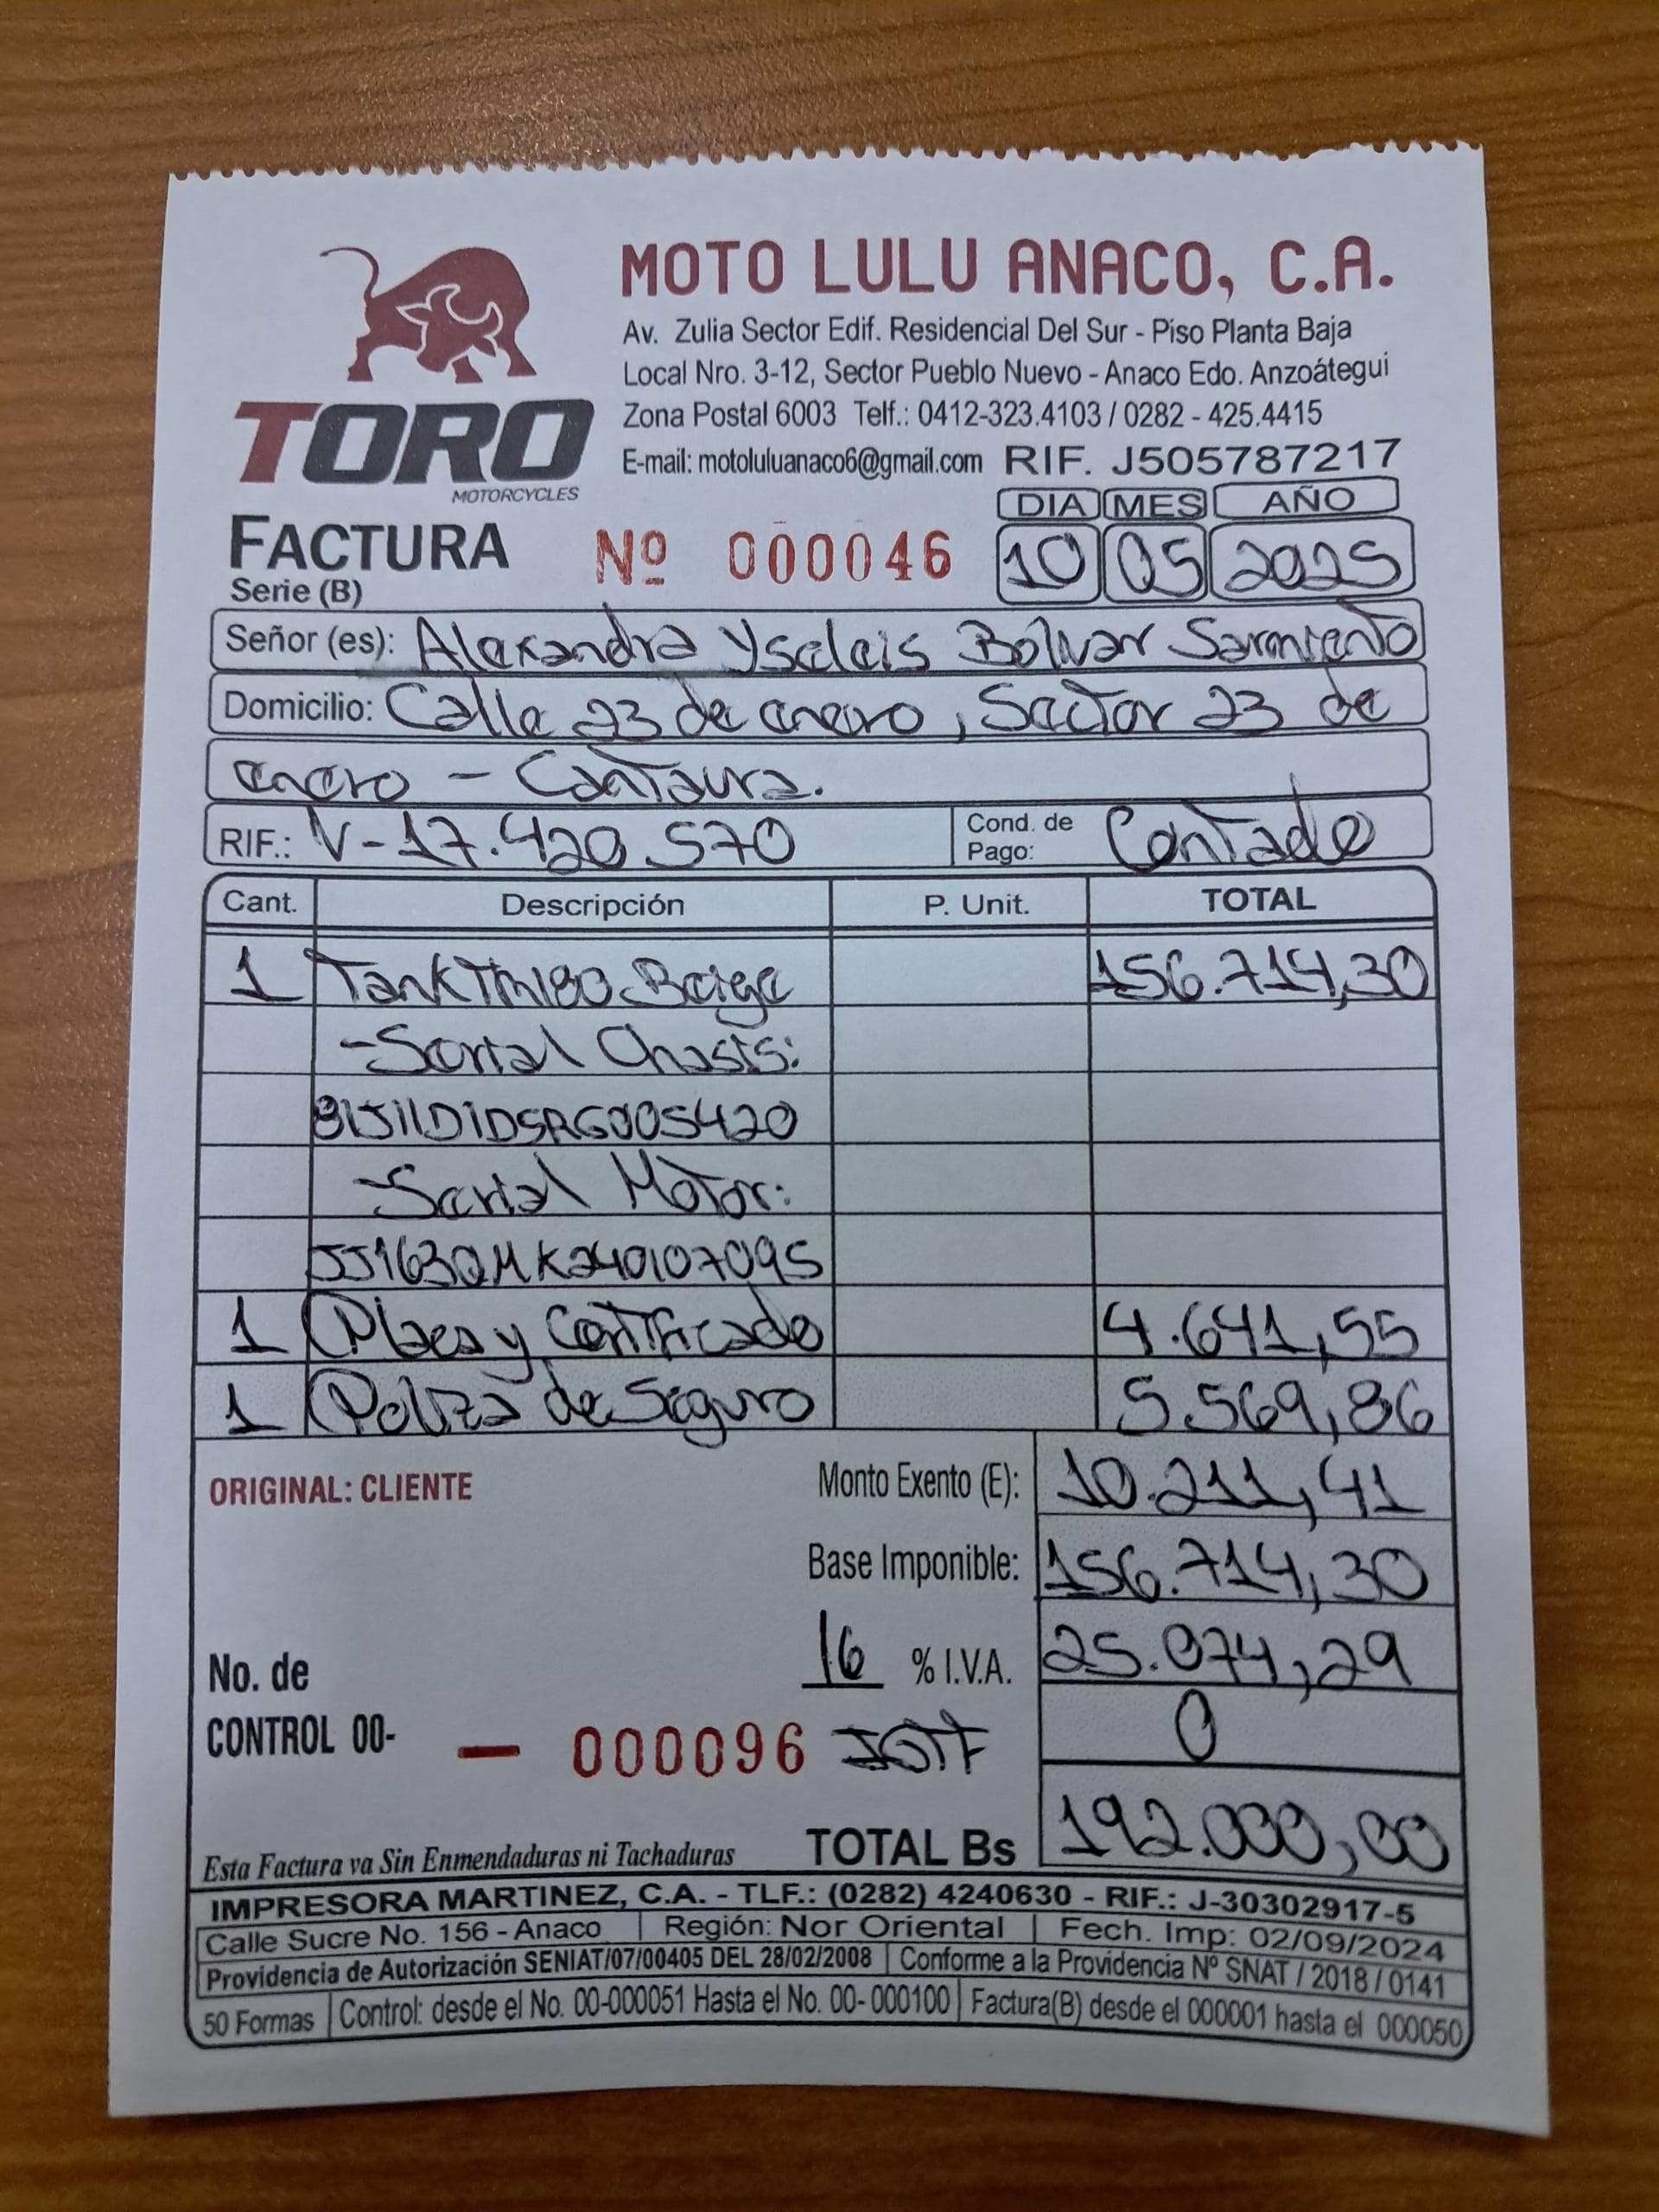 MOTO LULU ANACO, C.A.
Av. Zulia Sector Edif. Residencial Del Sur - Piso Planta Baja
Local Nro. 3-12, Sector Pueblo Nuevo - Anaco Edo. Anzoátegui
Zona Postal 6003 Telf.: 0412-323.4103 / 0282 - 425.4415
E-mail: motoluluanaco6@gmail.com RIF. J505787217
TORO
MOTORCYCLES
DIA MES AÑO
FACTURA Nº 000046 10 05 2025
Serie (B)
Señor (es): Alexandra Yseleis Bolivar Sarmiento
Domicilio: Calle 23 de enero, Sector 23 de
enero - Cantaura.
RIF.: V-17.420.570 Cond. de Pago: Contado
Cant. Descripción P. Unit. TOTAL
1 Tank TM180 Beige 156.714,30
- Serial Chasis:
- Serial Motor:
JJ163QMK240107095
1 Placa y Certificado 4.641,55
1 Poliza de Seguro 5.569,86
ORIGINAL: CLIENTE Monto Exento (E): 10.211,41
Base Imponible: 156.714,30
16 % I.V.A. 25.074,29
No. de
CONTROL 00- — 000096 IGTF 0
TOTAL Bs 192.000,00
Esta Factura va Sin Enmendaduras ni Tachaduras
IMPRESORA MARTINEZ, C.A. - TLF.: (0282) 4240630 - RIF.: J-30302917-5
Calle Sucre No. 156 - Anaco Región: Nor Oriental Fech. Imp: 02/09/2024
Providencia de Autorización SENIAT/07/00405 DEL 28/02/2008 Conforme a la Providencia Nº SNAT / 2018 / 0141
50 Formas Control: desde el No. 00-000051 Hasta el No. 00- 000100 Factura(B) desde el 000001 hasta el 000050